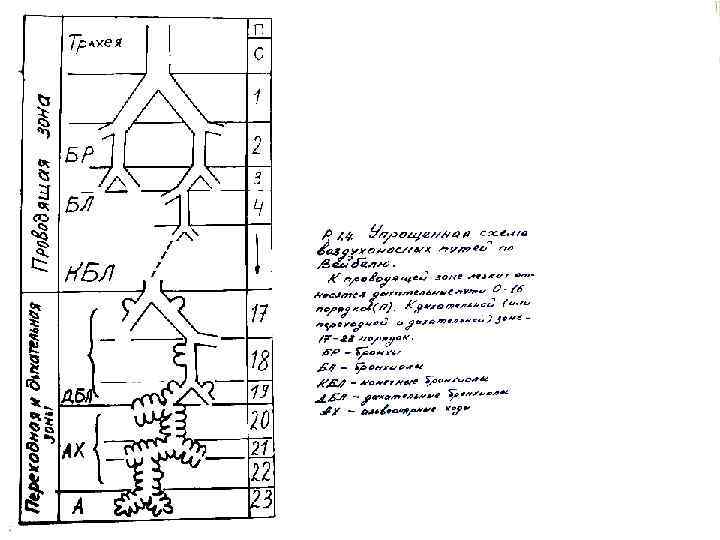 Проводящая зона
Переходная и дыхательная зоны
Трахея
П
0
1
БР
2
3
БЛ
4
КБЛ
17
18
ДБЛ
19
20
АХ
21
22
А
23
Р 1.4. Упрощенная схема
воздухоносных путей по
Вейбелю.
К проводящей зоне легких от-
носятся дыхательные пути 0-16
порядков (П). К дыхательной (или
переходной и дыхательной) зоне -
17-23 порядок.
БР - бронхи
БЛ - бронхиолы
КБЛ - конечные бронхиолы
ДБЛ - дыхательные бронхиолы
АХ - альвеолярные ходы